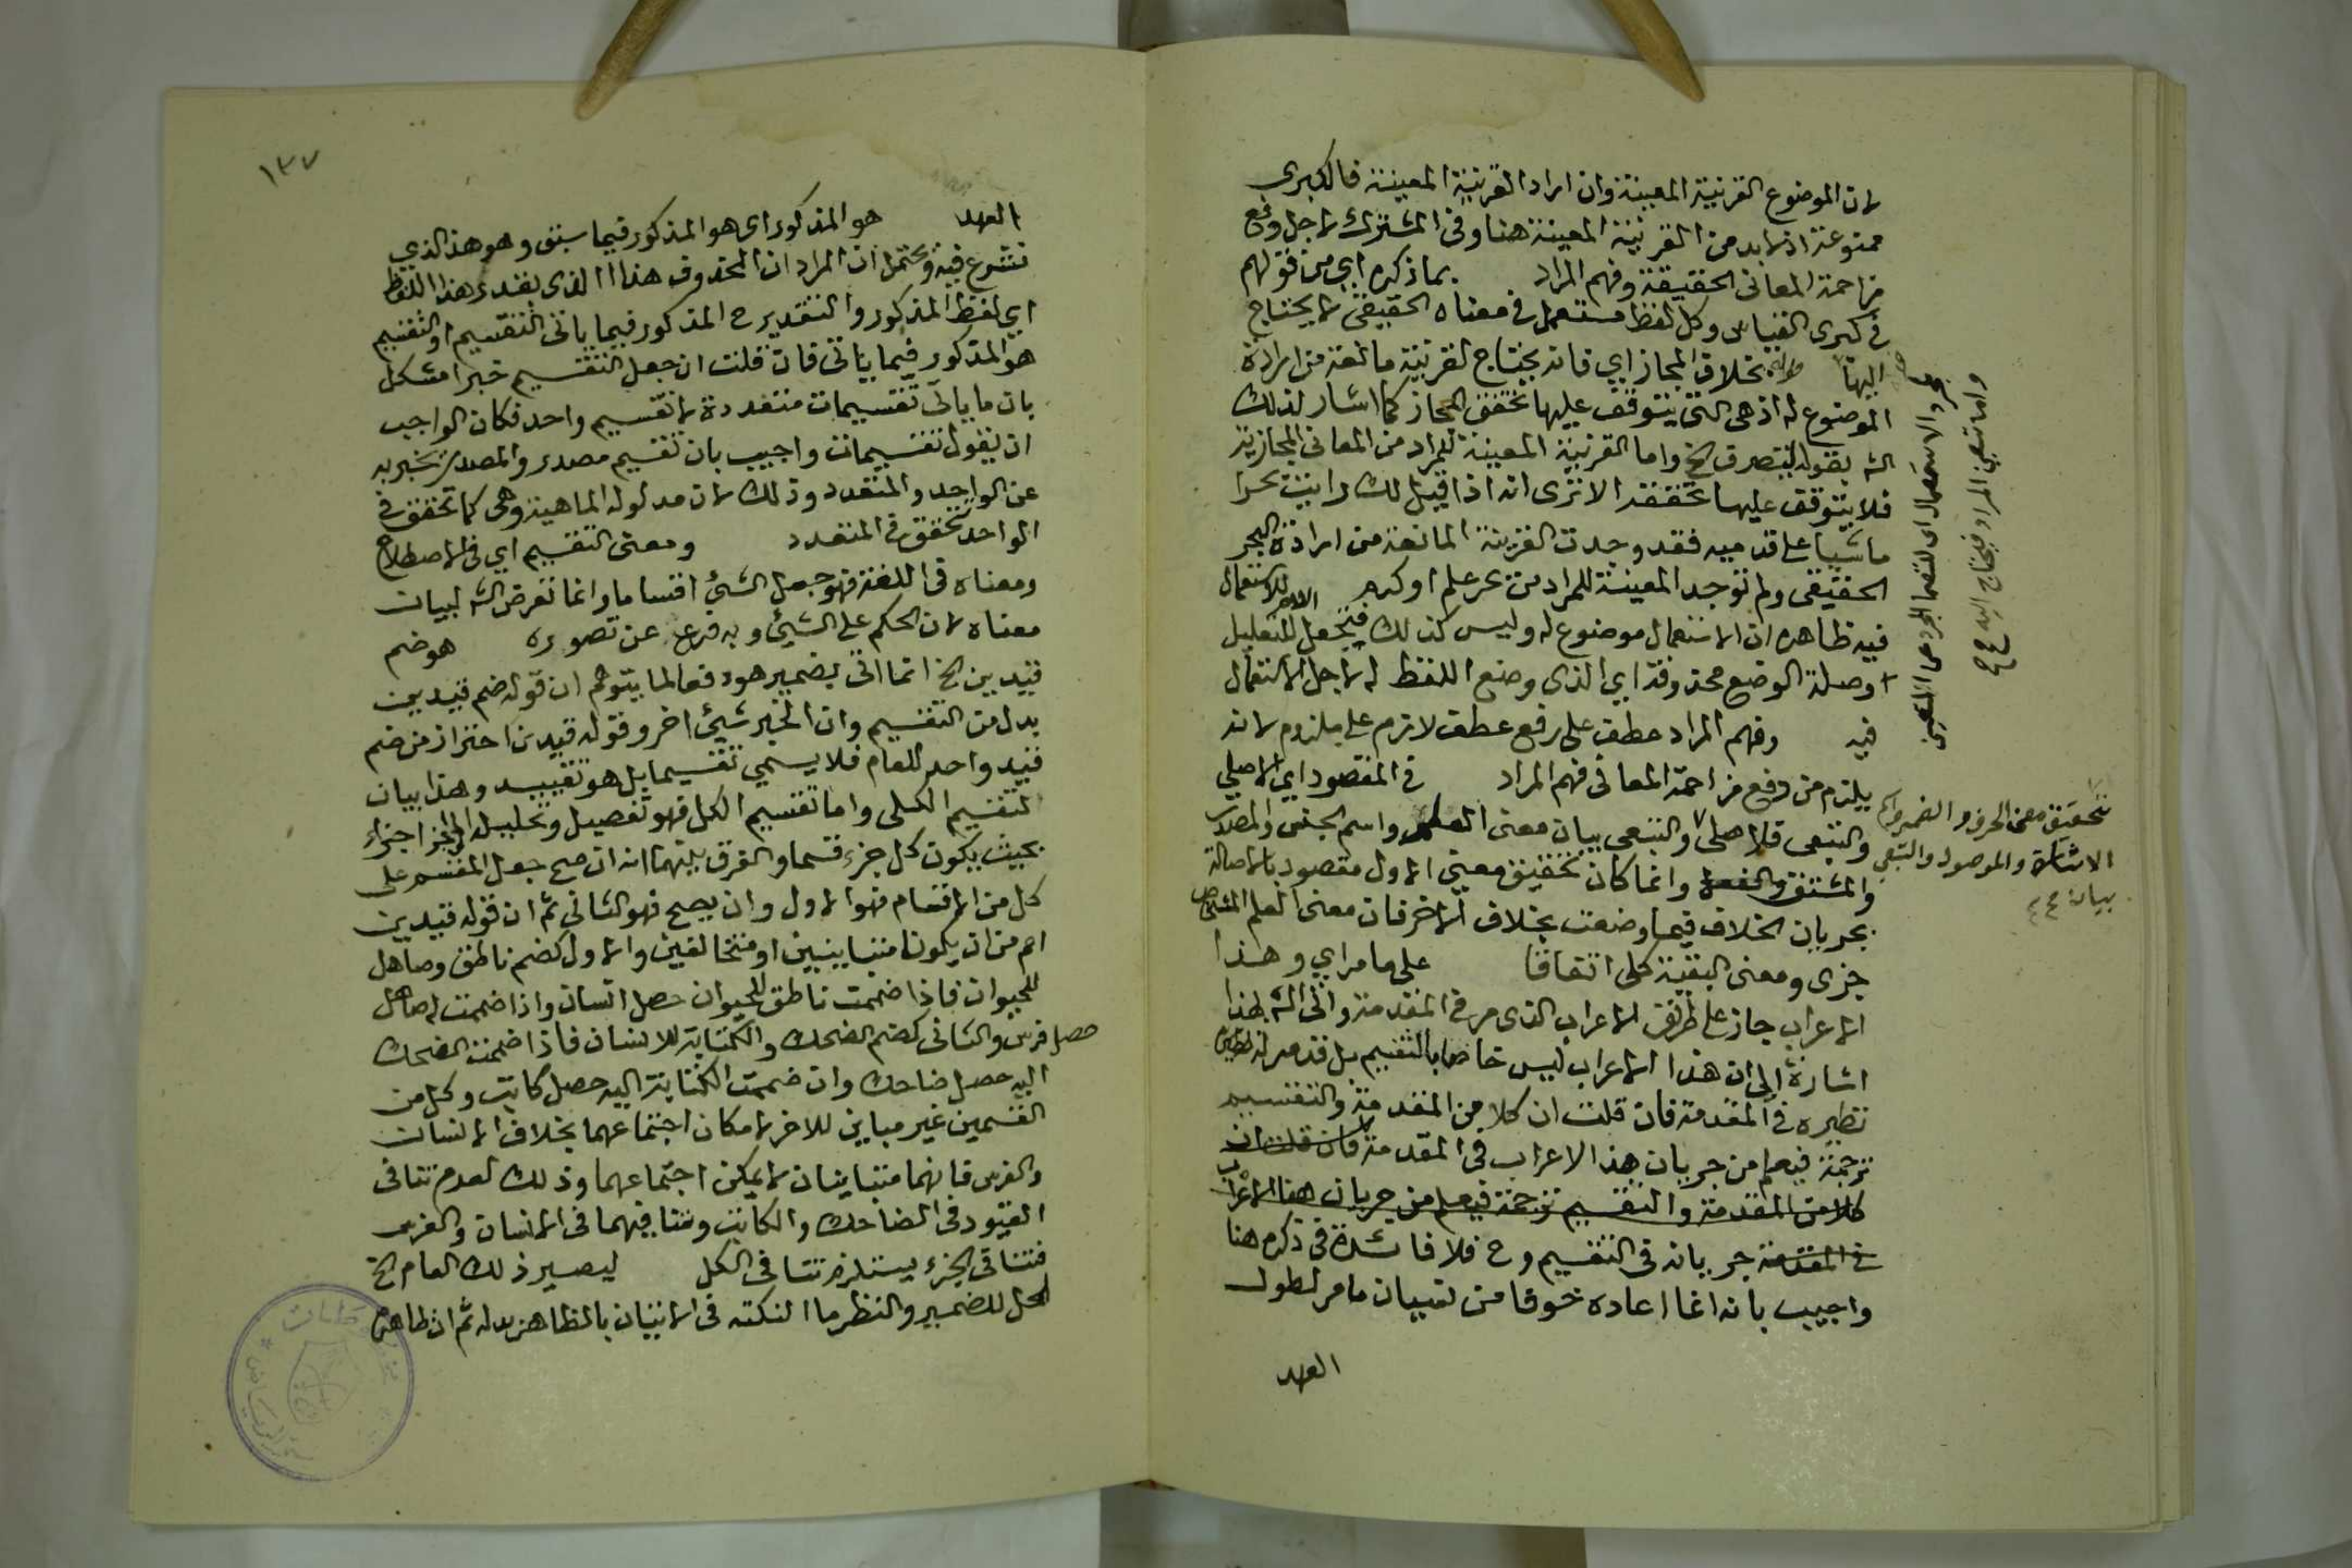 لان الموضوع القرينة المعينة وان اراد القرينة المعينة فالكبرى
ممنوعة اذ لا بد من القرينة المعينة هنا وفى المشترك لاجل دفع
مزاحمة المعانى الحقيقة وفهم المراد بما ذكره اي من قولهم
فى كبرى القياس وكل لفظ مستعمل فى معناه الحقيقى لا يحتاج
اليها قوله بخلاف المجاز اي فانه يحتاج لقرينة مانعة من ارادة
الموضوع له اذ هى التى يتوقف عليها تحقق المجاز كما اشار لذلك
الشه بقوله ليتصرف الخ واما القرينة المعينة للمراد من المعانى المجازية
فلا يتوقف عليها تحققه الا ترى انه اذا قيل لك رايت بحرا
ماشيا على قدميه فقد وجدت القرينة المانعة من ارادة البحر
الحقيقى ولم توجد المعينة للمراد من بحر علم او كرم للاستعمال
فيه ظاهره ان الاستعمال موضوع له وليس كذلك فتجعل اللام للتعليل
وصلة الوضع محذوفة اي الذى وضع اللفظ له لاجل الاستعمال
فيه وفهم المراد عطف على رفع عطف لازم على ملزوم لانه
يلزم من دفع مزاحمة المعانى فهم المراد فى المقصود اي الاصلي
والتبعى فالاصلى والتبعى بيان معنى العلم واسم الجنس والمصدر
والمشتق والفعل وانما كان تحقيق معنى الاول مقصود بالاصالة
بجريان الخلاف فيما وضعت بخلاف الاخر فان معنى العلم الشخصى
جزى ومعنى البقية كلى اتفاقا على ما مر اي وهذا
الاعراب جاز على طريق الاعراب الذى مر فى المقدمة واتى الشه بهذا
اشارة الى ان هذا الاعراب ليس خاصا بالتقسيم بل قد مر
نظيره فى المقدمة فان قلت ان كلا من المقدمة والتقسيم
ترجمة فيعلم من جريان هذا الاعراب فى المقدمة فان قلت ان
كلا من المقدمة والتقسيم ترجمة فيعلم من جريان هذا الاعراب
فى المقدمة جريانه فى التقسيم وح فلا فائدة فى ذكره هنا
واجيب بانه انما اعاده خوفا من نسيان ما مر لطول
العهد
واما تعيين المراد فيحتاج اليه
تحقيق معنى الحرف والضمير واسم
الاشارة والموصول والتبعى
بيان
١٣٧
العهد هو المذكور اى هو المذكور فيما سبق وهو هذا الذي
نشرع فيه ويحتمل ان المراد ان المحذوف هذا الذى يقدر هذا اللفظ
اي لفظ المذكور والتقدير ح المذكور فيما ياتى التقسيم او التقسيم
هو المذكور فيما ياتى فان قلت ان جعل التقسيم خبرا مشكل
بان ما ياتى تقسيمات متعددة لا تقسيم واحد فكان الواجب
ان يقول تقسيمات واجيب بان تقسيم مصدر والمصدر يخبر به
عن الواحد والمتعدد وذلك لان مدلوله الماهية وهى كما تحقق فى
الواحد تحقق فى المتعدد ومعنى التقسيم اي فى الاصطلاح
ومعناه فى اللغة فهو جعل الشئ اقساما وانما تعرض الشه لبيان
معناه لان الحكم على الشئ وبه فرع عن تصوره هو ضم
قيدين الخ انما اتى بضمير هو دفعا لما يتوهم ان قوله ضم قيدين
بدل من التقسيم وان الخبر شئ اخر وقوله قيدين احتراز من ضم
قيد واحد للعام فلا يسمي تقسيما بل هو تقييد وهذا بيان
لتقسيم الكلى واما تقسيم الكل فهو تفصيل وتحليل اجزاء
بحيث يكون كل جزء قسما والفرق بينهما انه ان صح جعل المقسم على
كل من الاقسام فهو الاول وان يصح فهو الثانى ثم ان قوله قيدين
اعم من ان يكونا متباينين او متخالفين والاول كضم ناطق وصاهل
للحيوان فاذا ضممت ناطق للحيوان حصل انسان واذا ضممت له صاهل
حصل فرس والثانى كضم الضحك والكتابة للانسان فاذا ضممت الضحك
اليه حصل ضاحك وان ضممت الكتابة اليه حصل كاتب وكل من
القسمين غير مباين للاخر لامكان اجتماعهما بخلاف الانسان
والفرس فانهما متباينان لا يمكن اجتماعهما وذلك لعدم تنافى
القيود فى الضاحك والكاتب وتنافيهما فى الانسان والفرس
فتنافى الجزء يستلزم تنافى الكل ليصير ذلك العام الخ
المحل للضمير والنظر ما النكته فى الاتيان بالظاهر بدله ثم ان ظاهره